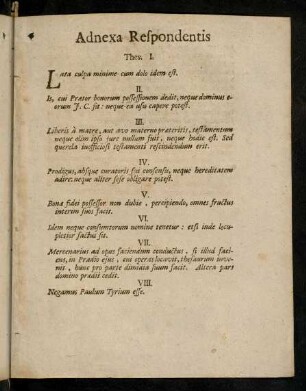 Adnexa Respondentis
Thes. I.
Lata culpa minime cum dolo idem est.
II.
Is, cui Prætor bonorum possessionem dedit, neque dominus e-
orum J. C. fit: neque ea usu capere potest.
III.
Liberis à matre, aut avo materno præteritis, testamentum
neque olim ipso jure nullum fuit, neque hodie est. Sed
querela inofficiosi testamenti rescindendum erit.
IV.
Prodigus, absque curatoris sui consensu, neque hereditatem
adire: neque aliter sese obligare potest.
V.
Bona fidei possessor non dubie, percipiendo, omnes fructus
interim suos facit.
VI.
Idem neque consumtorum nomine tenetur: etsi inde locu-
pletior factus sit.
VII.
Mercenarius ad opus faciundum conductus, si illud faci-
ens, in Prædio ejus, cui operas locavit, thesaurum inve-
nit, hunc pro parte dimidia suum facit. Altera pars
domino prædii cedit.
VIII.
Negamus Paulum Tyrium esse.